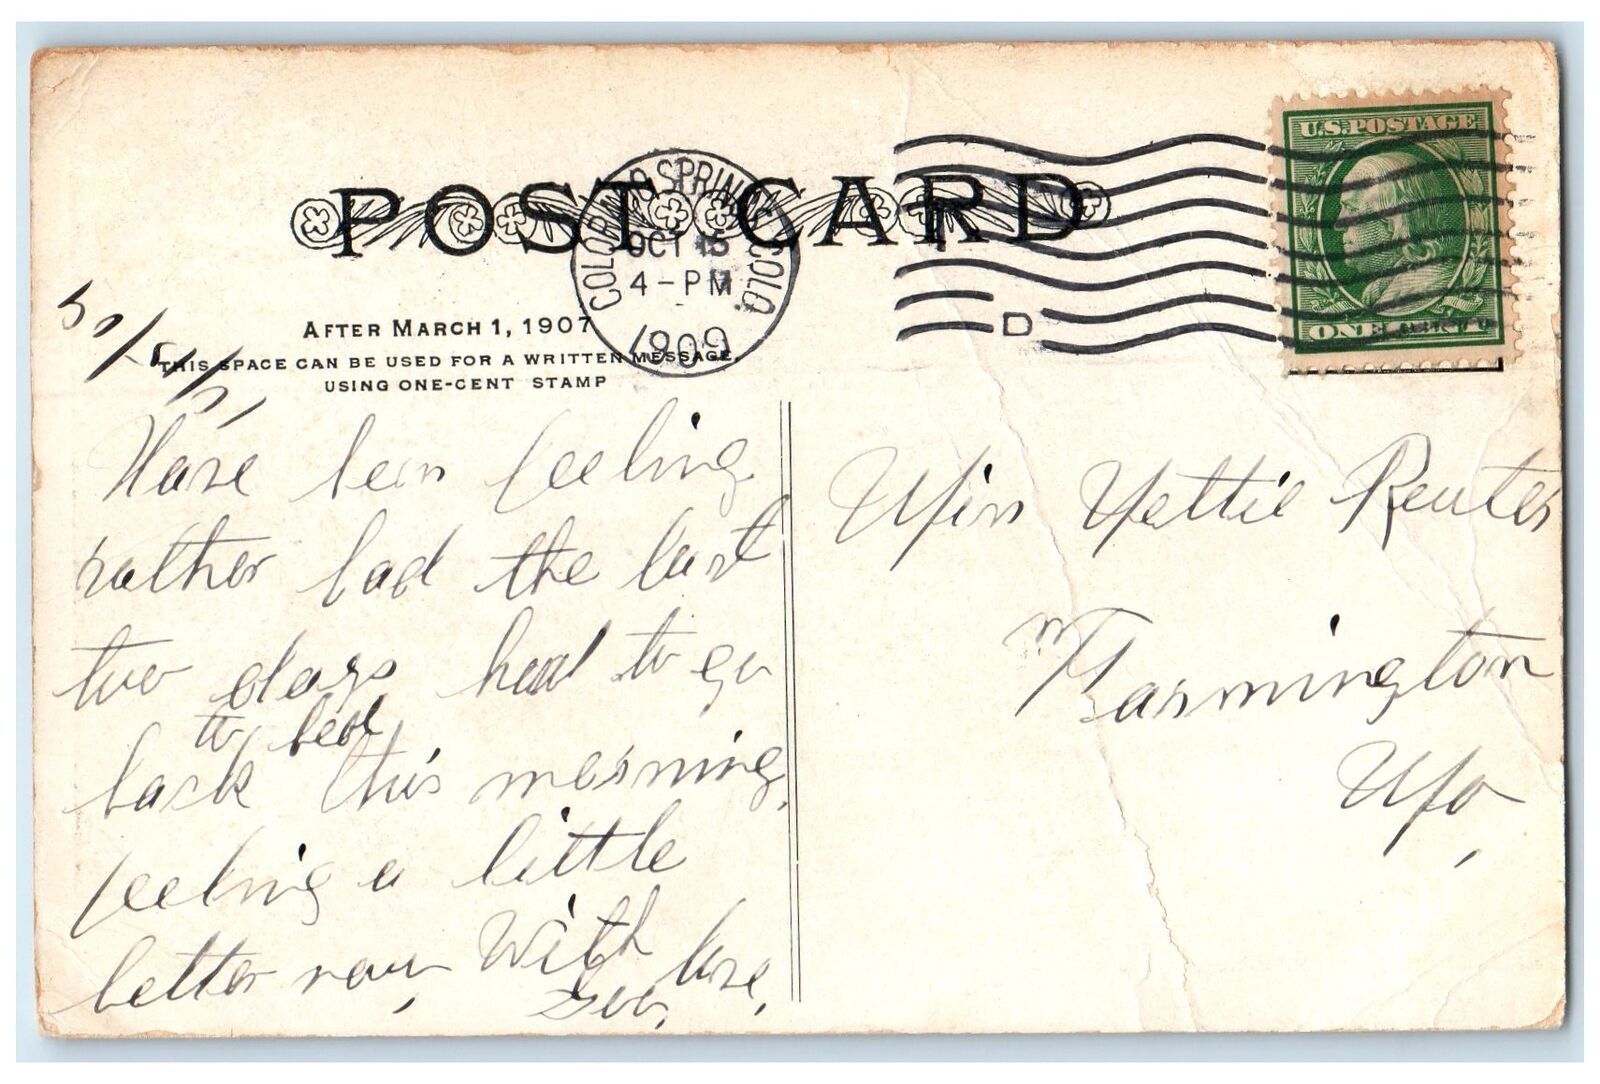 POST CARD
COLORADO SPRINGS COLO.
OCT 15
4-PM
1909
D
U.S. POSTAGE
ONE
AFTER MARCH 1, 1907
THIS SPACE CAN BE USED FOR A WRITTEN MESSAGE
USING ONE-CENT STAMP
Have been feeling
rather bad the last
two days had to go
to bed
back this morning,
feeling a little
better now, With love,
Geo,
Miss Nettie Reuter
Farmington
Mo,